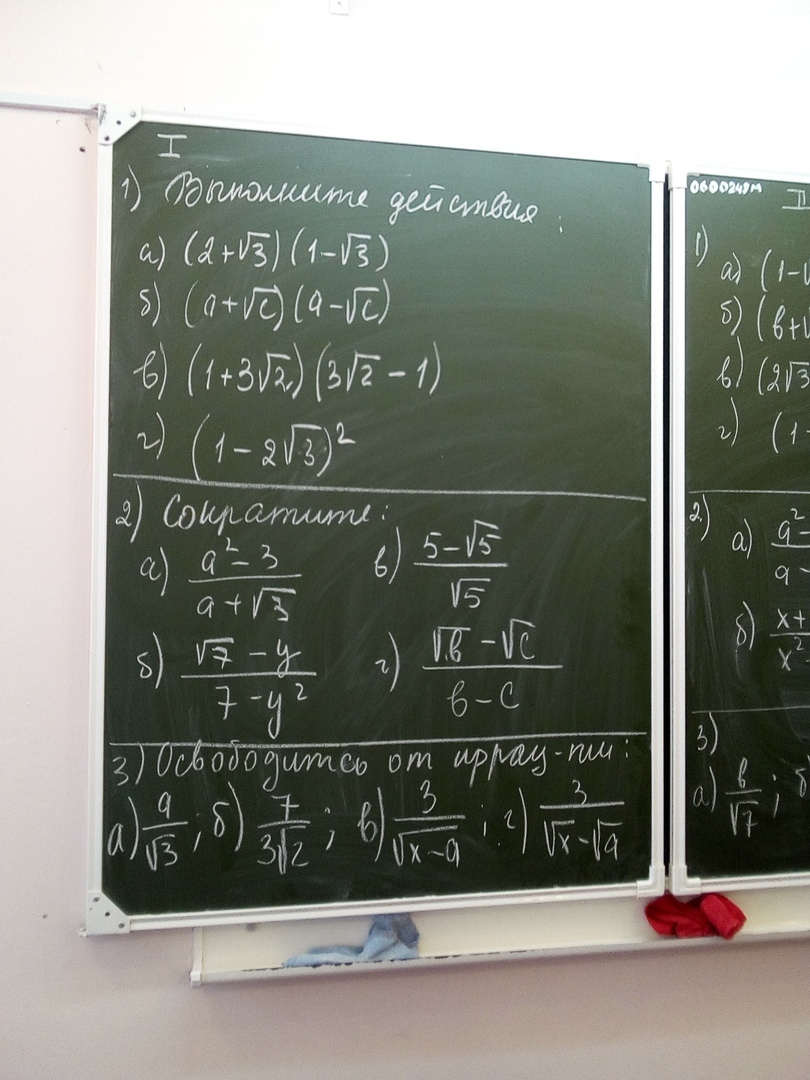 I
1) Выполните действия:
а) (2+√3)(1-√3)
б) (a+√c)(a-√c)
в) (1+3√2)(3√2-1)
г) (1-2√3)²
2) Сократите:
а) (a²-3)/(a+√3) в) (5-√5)/√5
б) (√7-y)/(7-y²) г) (√в-√c)/(в-c)
3) Освободитсь от иррац-ти:
а) a/√3; б) 7/3√2; в) 3/√x-a; г) 3/(√x-√a)
0600249М
II
1)
а) (1-√
б) (в+√
в) (2√3
г) (1-
2) а) a²-
a-
б) x+
x²
3)
а) в/√7; б)